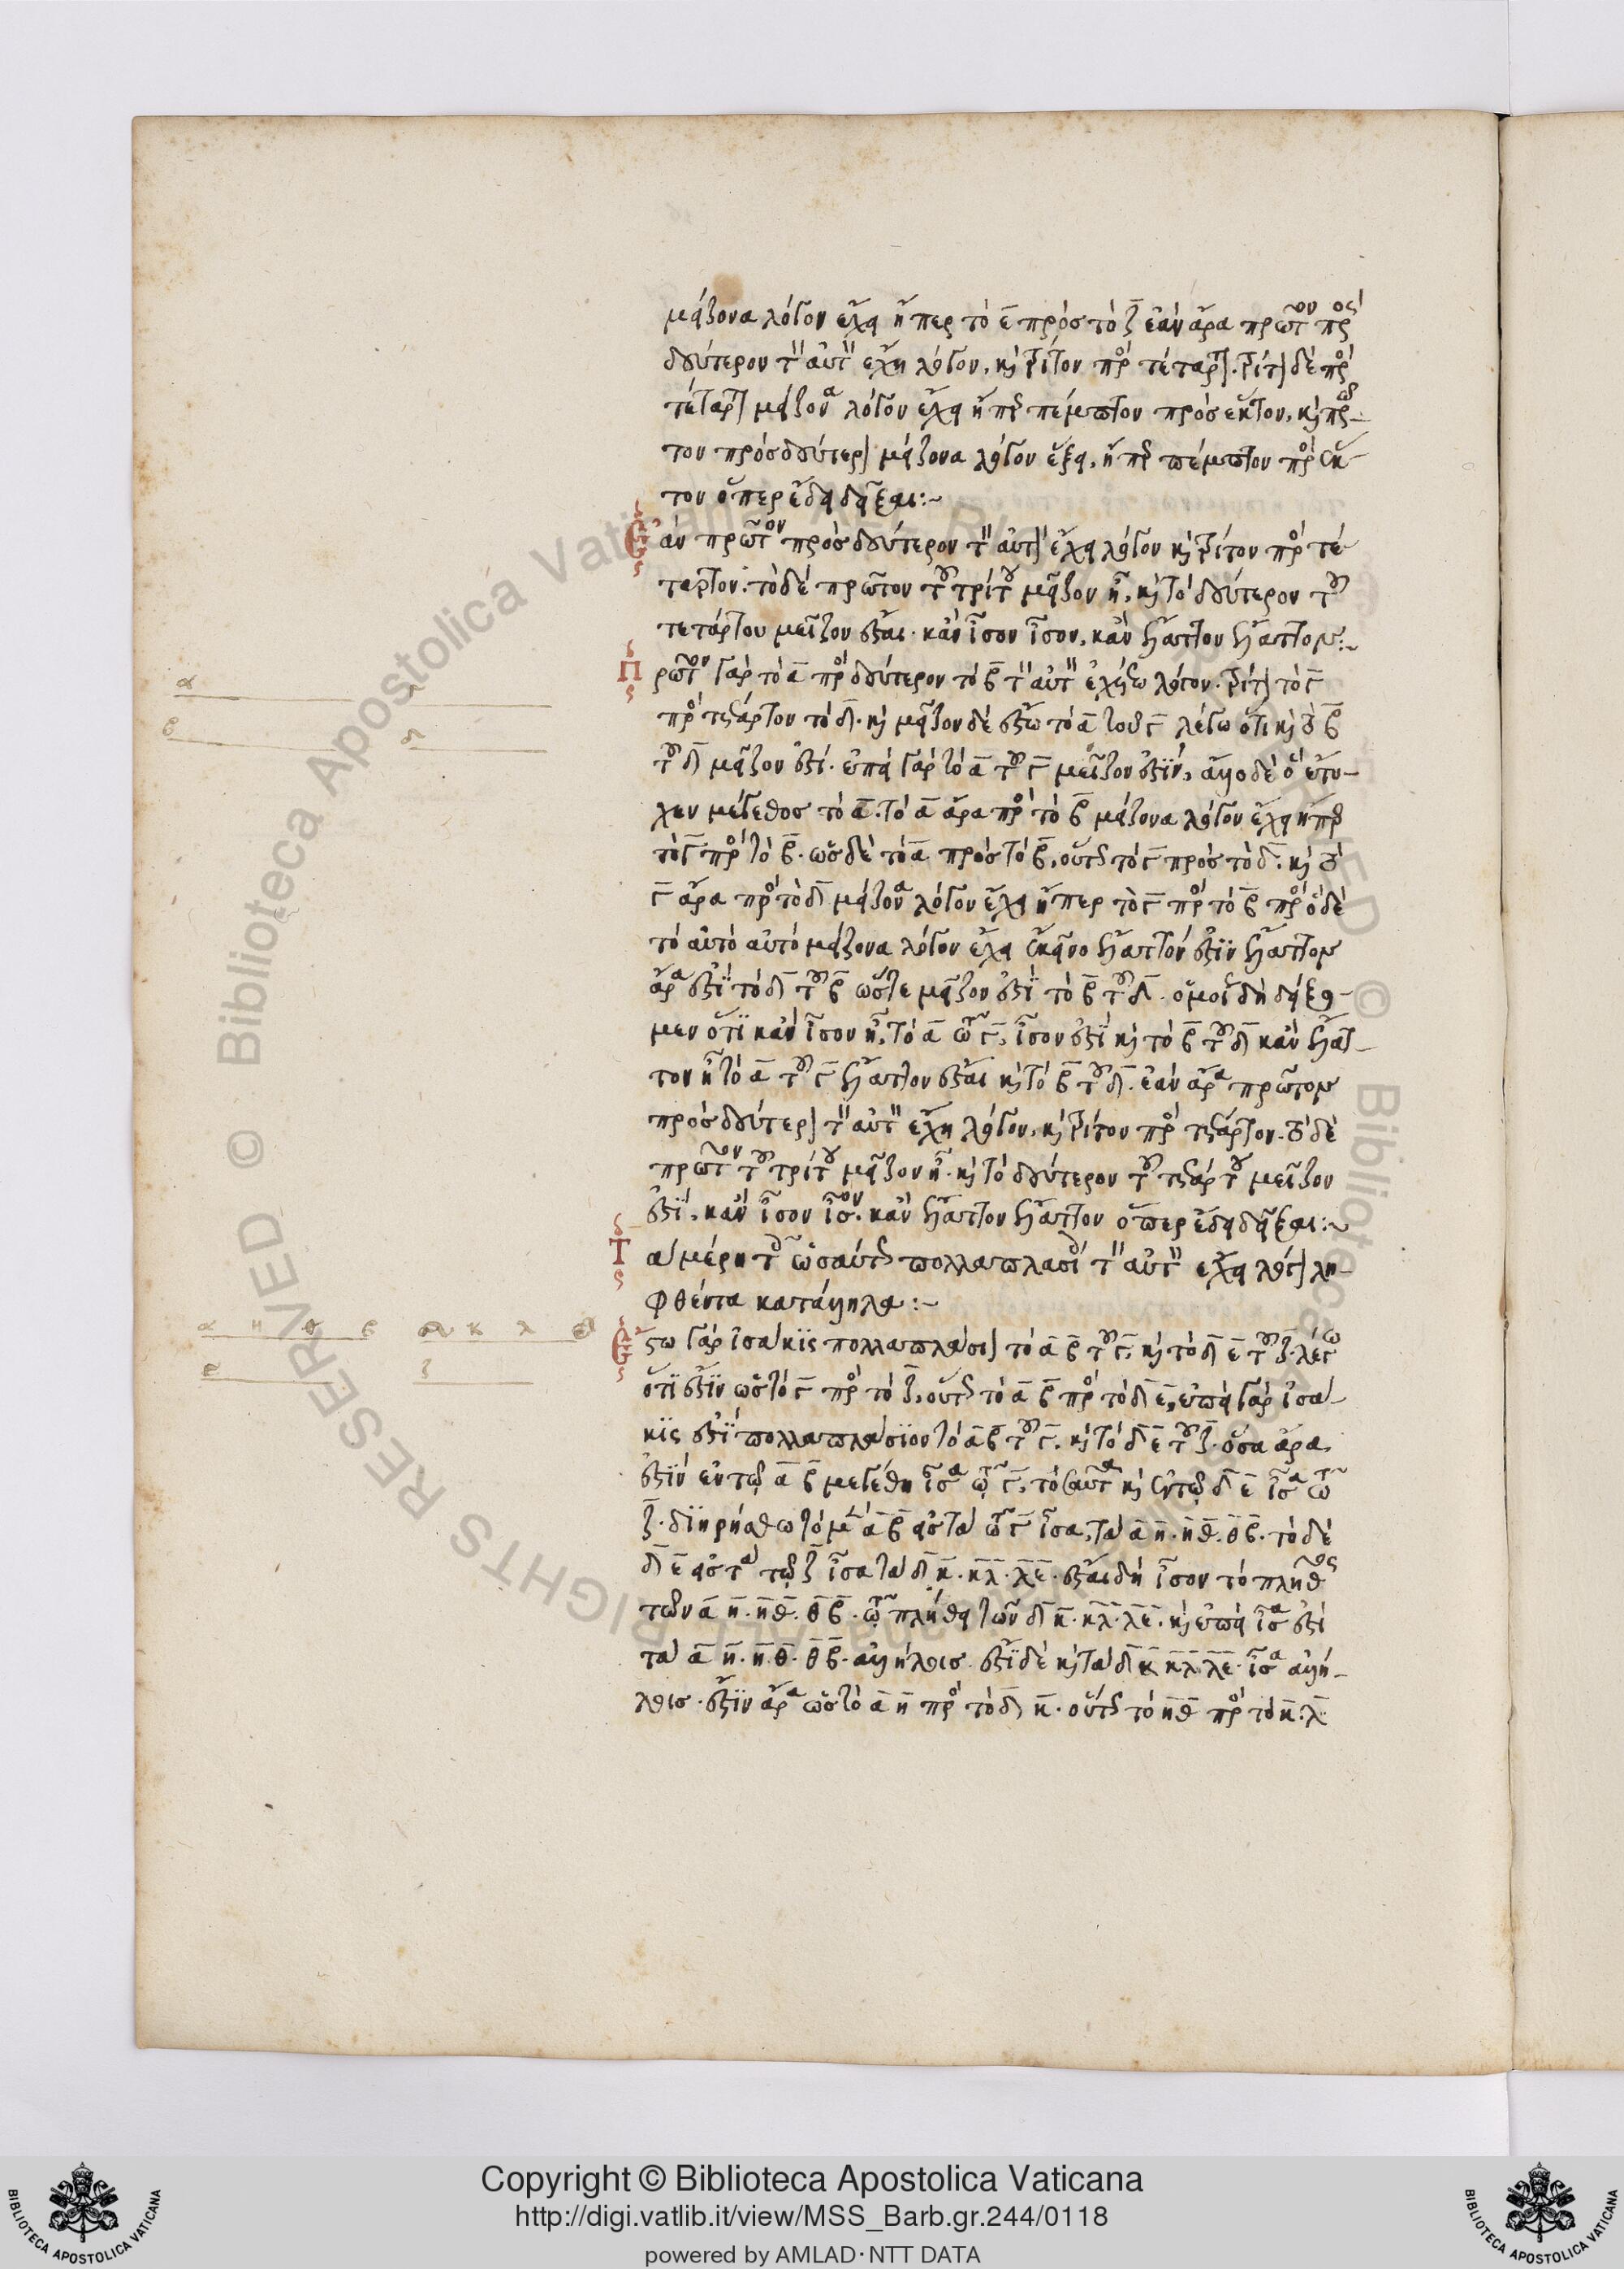 μείζονα λόγον ἔχει ἤπερ τὸ ε̅ πρὸς τὸ ζ̅ ἐὰν ἄρα πρῶτον πρὸς
δεύτερον τὸν αὐτὸν ἔχη λόγον, καὶ τρίτον πρὸς τέταρτον. τρίτον δὲ πρὸς
τέταρτον μείζονα λόγον ἔχει ἤπερ πέμπτον πρὸς ἕκτον, καὶ πρῶ-
τον πρὸς δεύτερον μείζονα λόγον ἕξει, ἤπερ πέμπτον πρὸς ἕκ-
τον ὅπερ ἔδει δεῖξαι:~
Ἐὰν πρῶτον πρὸς δεύτερον τὸν αὐτὸν ἔχει λόγον καὶ τρίτον πρὸς τέ-
ταρτον. τὸ δὲ πρῶτον τοῦ τρίτου μεῖζον ἦ, καὶ τὸ δεύτερον τοῦ
τετάρτου μεῖζον ἔσται. κἂν ἴσον ἴσον, κἂν ἔλαττον ἔλαττον:~
Πρῶτον γὰρ τὸ α̅ πρὸς δεύτερον τὸ β̅ τὸν αὐτὸν ἐχέτω λόγον. τρίτον τὸ γ̅
πρὸς τέταρτον τὸ δ̅. καὶ μεῖζον δὲ ἔστω τὸ α̅ τοῦ γ̅ λέγω ὅτι καὶ τὸ β̅
τοῦ δ̅ μεῖζον ἐστί. ἐπεὶ γὰρ τὸ α̅ τοῦ γ̅ μεῖζον ἐστϊν, ἄλλο δὲ ὃ ἔτυ-
χεν μέγεθος τὸ α̅. τὸ α̅ ἄρα πρὸς τὸ β̅ μείζονα λόγον ἔχει ἤπερ
τὸ γ̅ πρὸς τὸ β̅. ὡς δὲ τὸ α̅ πρὸς τὸ β̅, οὕτως τὸ γ̅ πρὸς τὸ δ̅. καὶ τὸ
γ̅ ἄρα πρὸς τὸ δ̅ μείζονα λόγον ἔχει ἤπερ τὸ γ̅ πρὸς τὸ β̅ πρὸς ὃ δὲ
τὸ αὐτὸ αὐτὸ μείζονα λόγον ἔχει ἐκεῖνο ἔλαττόν ἐστϊν ἔλαττον
ἄρα ἐστϊ τὸ δ̅ τοῦ β̅ ὥστε μεῖζον ἐστϊ τὸ β̅ τοῦ δ̅. ὁμοίως δὴ δείξο-
μεν ὅτϊ κἂν ἴσον ἦ, τὸ α̅ τῶ γ̅, ἴσον ἐστϊ καὶ τὸ β̅ τοῦ δ̅ κἂν ἔλατ-
τον ἦ τὸ α̅ τοῦ γ̅ ἔλαττον ἔσται καὶ τὸ β̅ τοῦ δ̅. ἐὰν ἄρα πρῶτον
πρὸς δεύτερον τὸν αὐτὸν ἔχη λόγον, καὶ τρίτον πρὸς τέταρτον. τὸ δὲ
πρῶτον τοῦ τρίτου μεῖζον ἦ. καὶ τὸ δεύτερον τοῦ τετάρτου μεῖζον
ἐστϊ, κἂν ἴσον ἴσον. κἂν ἔλαττον ἔλαττον ὅπερ ἔδει δεῖξαι:~
Τὰ μέρη τοῖς ὡσαύτως πολλαπλασίοις τὸν αὐτὸν ἔχει λόγον λη-
φθέντα κατάλληλα:~
Ἔστω γὰρ ἰσάκϊς πολλαπλάσιον τὸ α̅ β̅ τοῦ γ̅, καὶ τὸ δ̅ ε̅ τοῦ ζ̅. λέγω
ὅτϊ ἐστϊν ὡς τὸ γ̅ πρὸς τὸ ζ̅, οὕτως τὸ α̅ β̅ πρὸς τὸ δ̅ ε̅, ἐπεὶ γὰρ ἰσά-
κϊς ἐστϊ πολλαπλάσϊον τὸ α̅ β̅ τοῦ γ̅, καὶ τὸ δ̅ ε̅ τοῦ ζ̅. ὅσα ἄρα
ἐστϊν ἐν τῷ α̅ β̅ μεγέθη ἴσα τῷ γ̅, τοσαῦτα καὶ ἐν τῷ δ̅ ε̅ ἴσα τῶ
ζ̅. δϊηρήσθω τὸ μὲν α̅ β̅ εἰς τὰ τῶ γ̅ ἴσα, τὰ α̅ η̅. η̅θ̅. θ̅β̅. τὸ δὲ
δ̅ ε̅ εἰς τὰ τῷ ζ̅ ἴσα τὰ δ̅ κ̅. κ̅λ̅. λ̅ε̅. ἔσται δὴ ἴσον τὸ πλῆθος
τῶν α̅ η̅. η̅θ̅. θ̅β̅. τῷ πλήθει τῶν δ̅ κ̅. κ̅λ̅. λ̅ε̅. καὶ ἐπεὶ ἴσα ἐστὶ
τὰ α̅ η̅. η̅θ̅. θ̅β̅. ἀλλήλοις. ἐστϊ δὲ καὶ τὰ δ̅κ̅ κ̅λ̅ λ̅ε̅. ἴσα ἀλλή-
λοις. ἔστϊν ἄρα ὡς τὸ α̅ η̅ πρὸς τὸ δ̅ κ̅. οὕτως τὸ η̅θ̅ πρὸς τὸ κ̅.λ̅
α γ
β δ
α η θ β δ κ λ ε
ζ
Copyright © Biblioteca Apostolica Vaticana
http://digi.vatlib.it/view/MSS_Barb.gr.244/0118
powered by AMLAD·NTT DATA
BIBLIOTECA APOSTOLICA VATICANA
BIBLIOTECA APOSTOLICA VATICANA